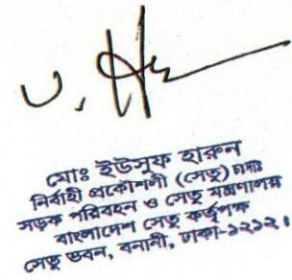 মোঃ ইউসুফ হারুন
নির্বাহী প্রকৌশলী (সেতু)
সড়ক পরিবহন ও সেতু মন্ত্রণালয়
বাংলাদেশ সেতু কর্তৃপক্ষ
সেতু ভবন, বনানী, ঢাকা-১২১২।